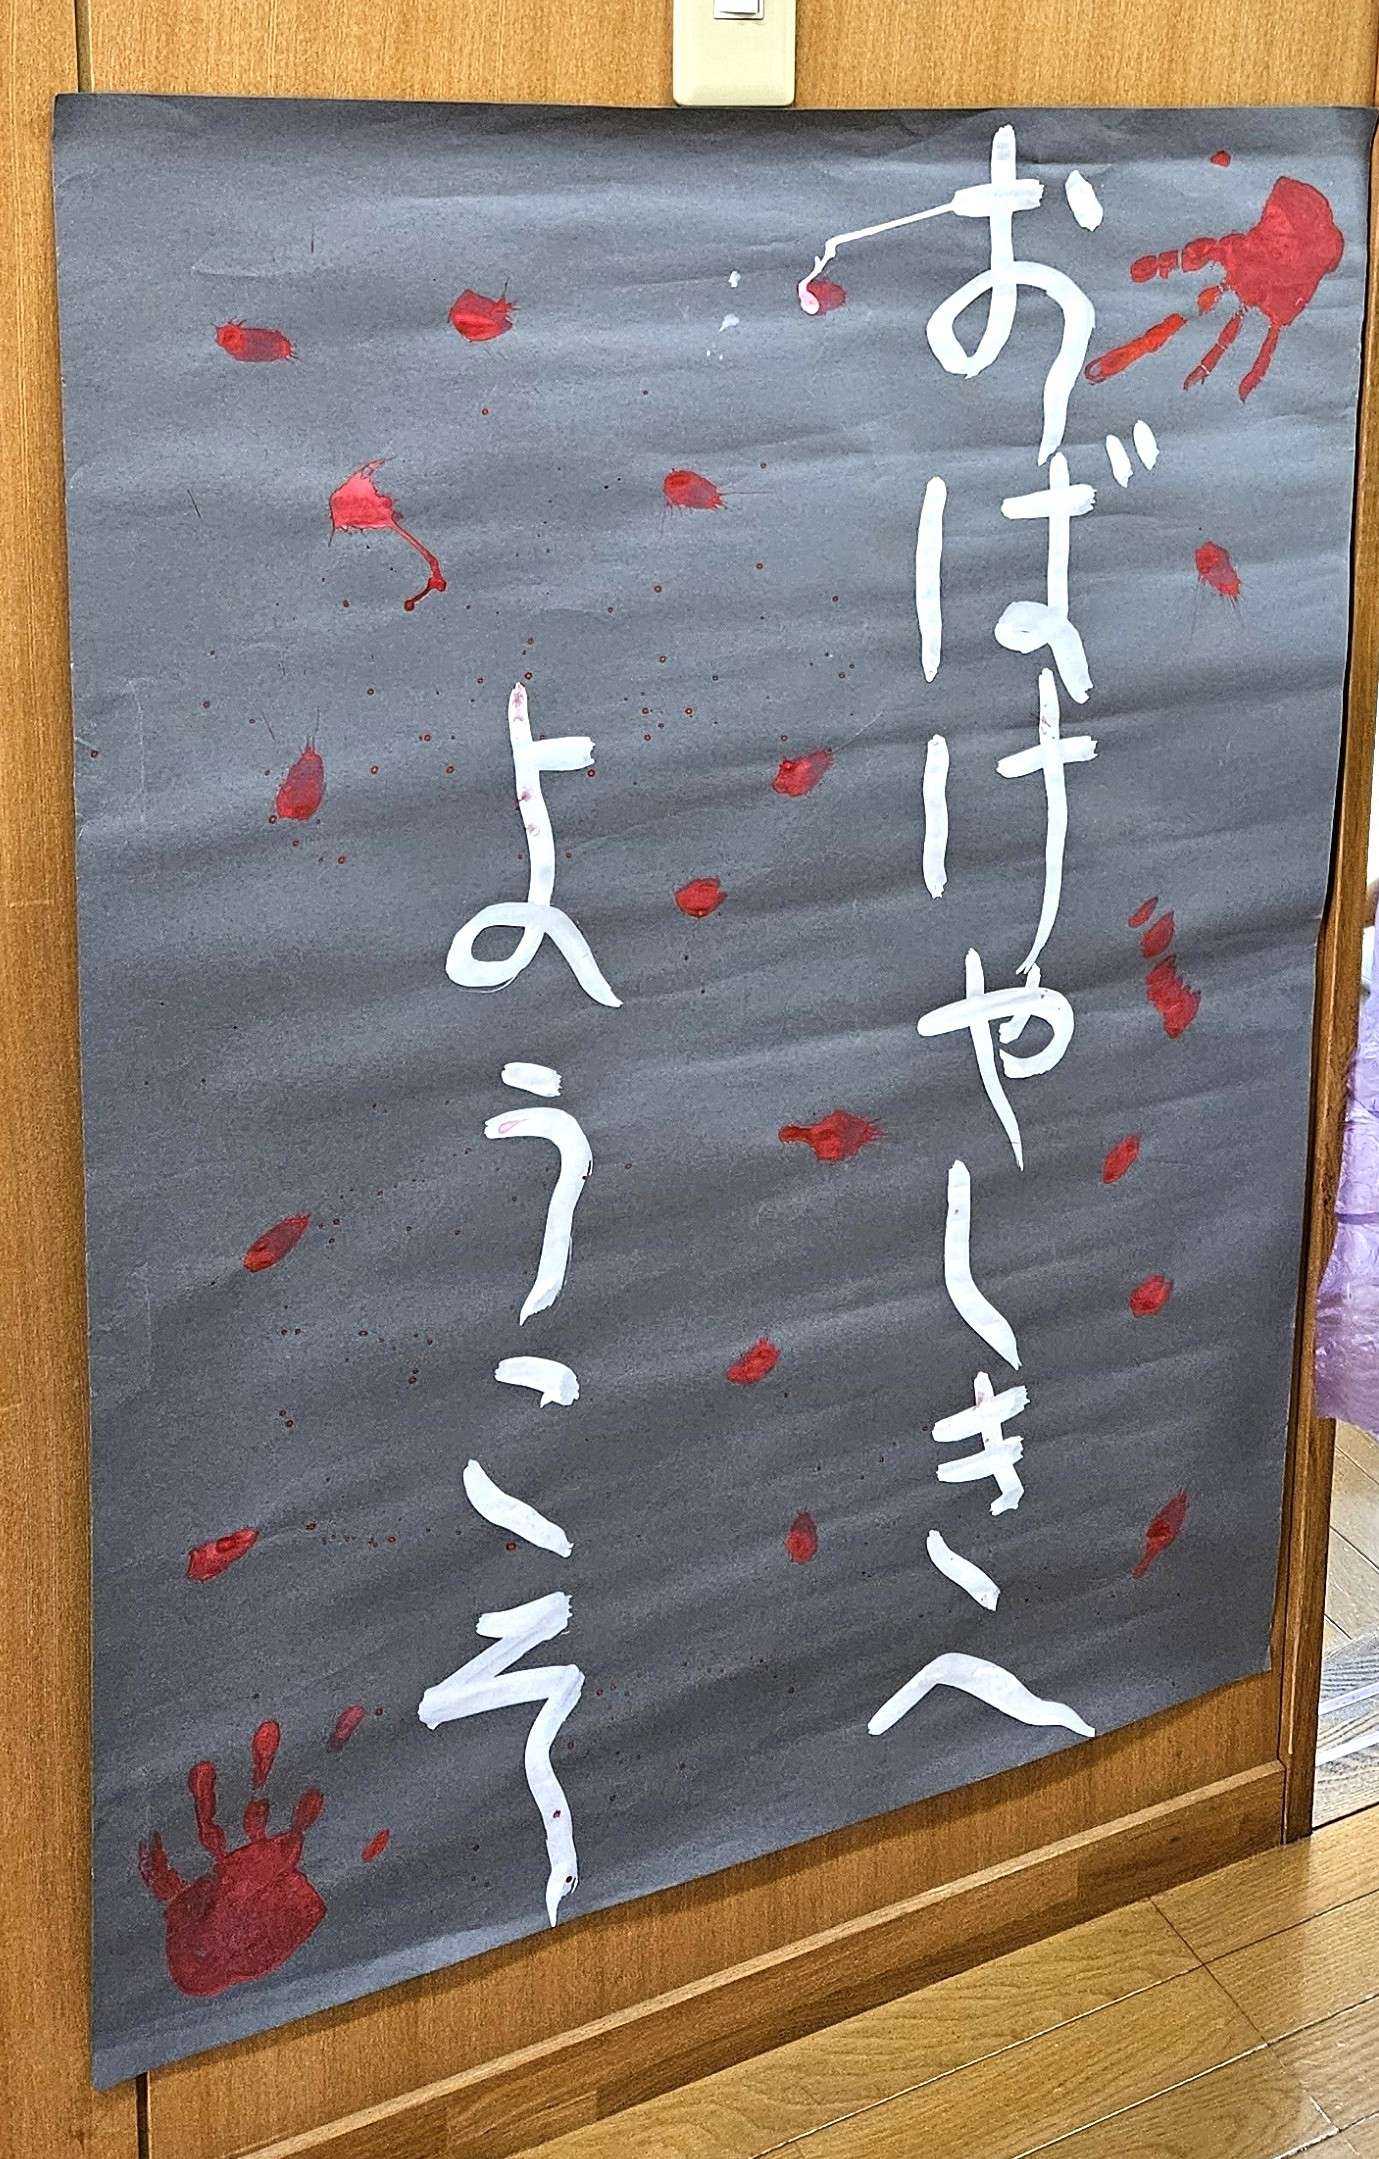 おばけやしきへ
ようこそ